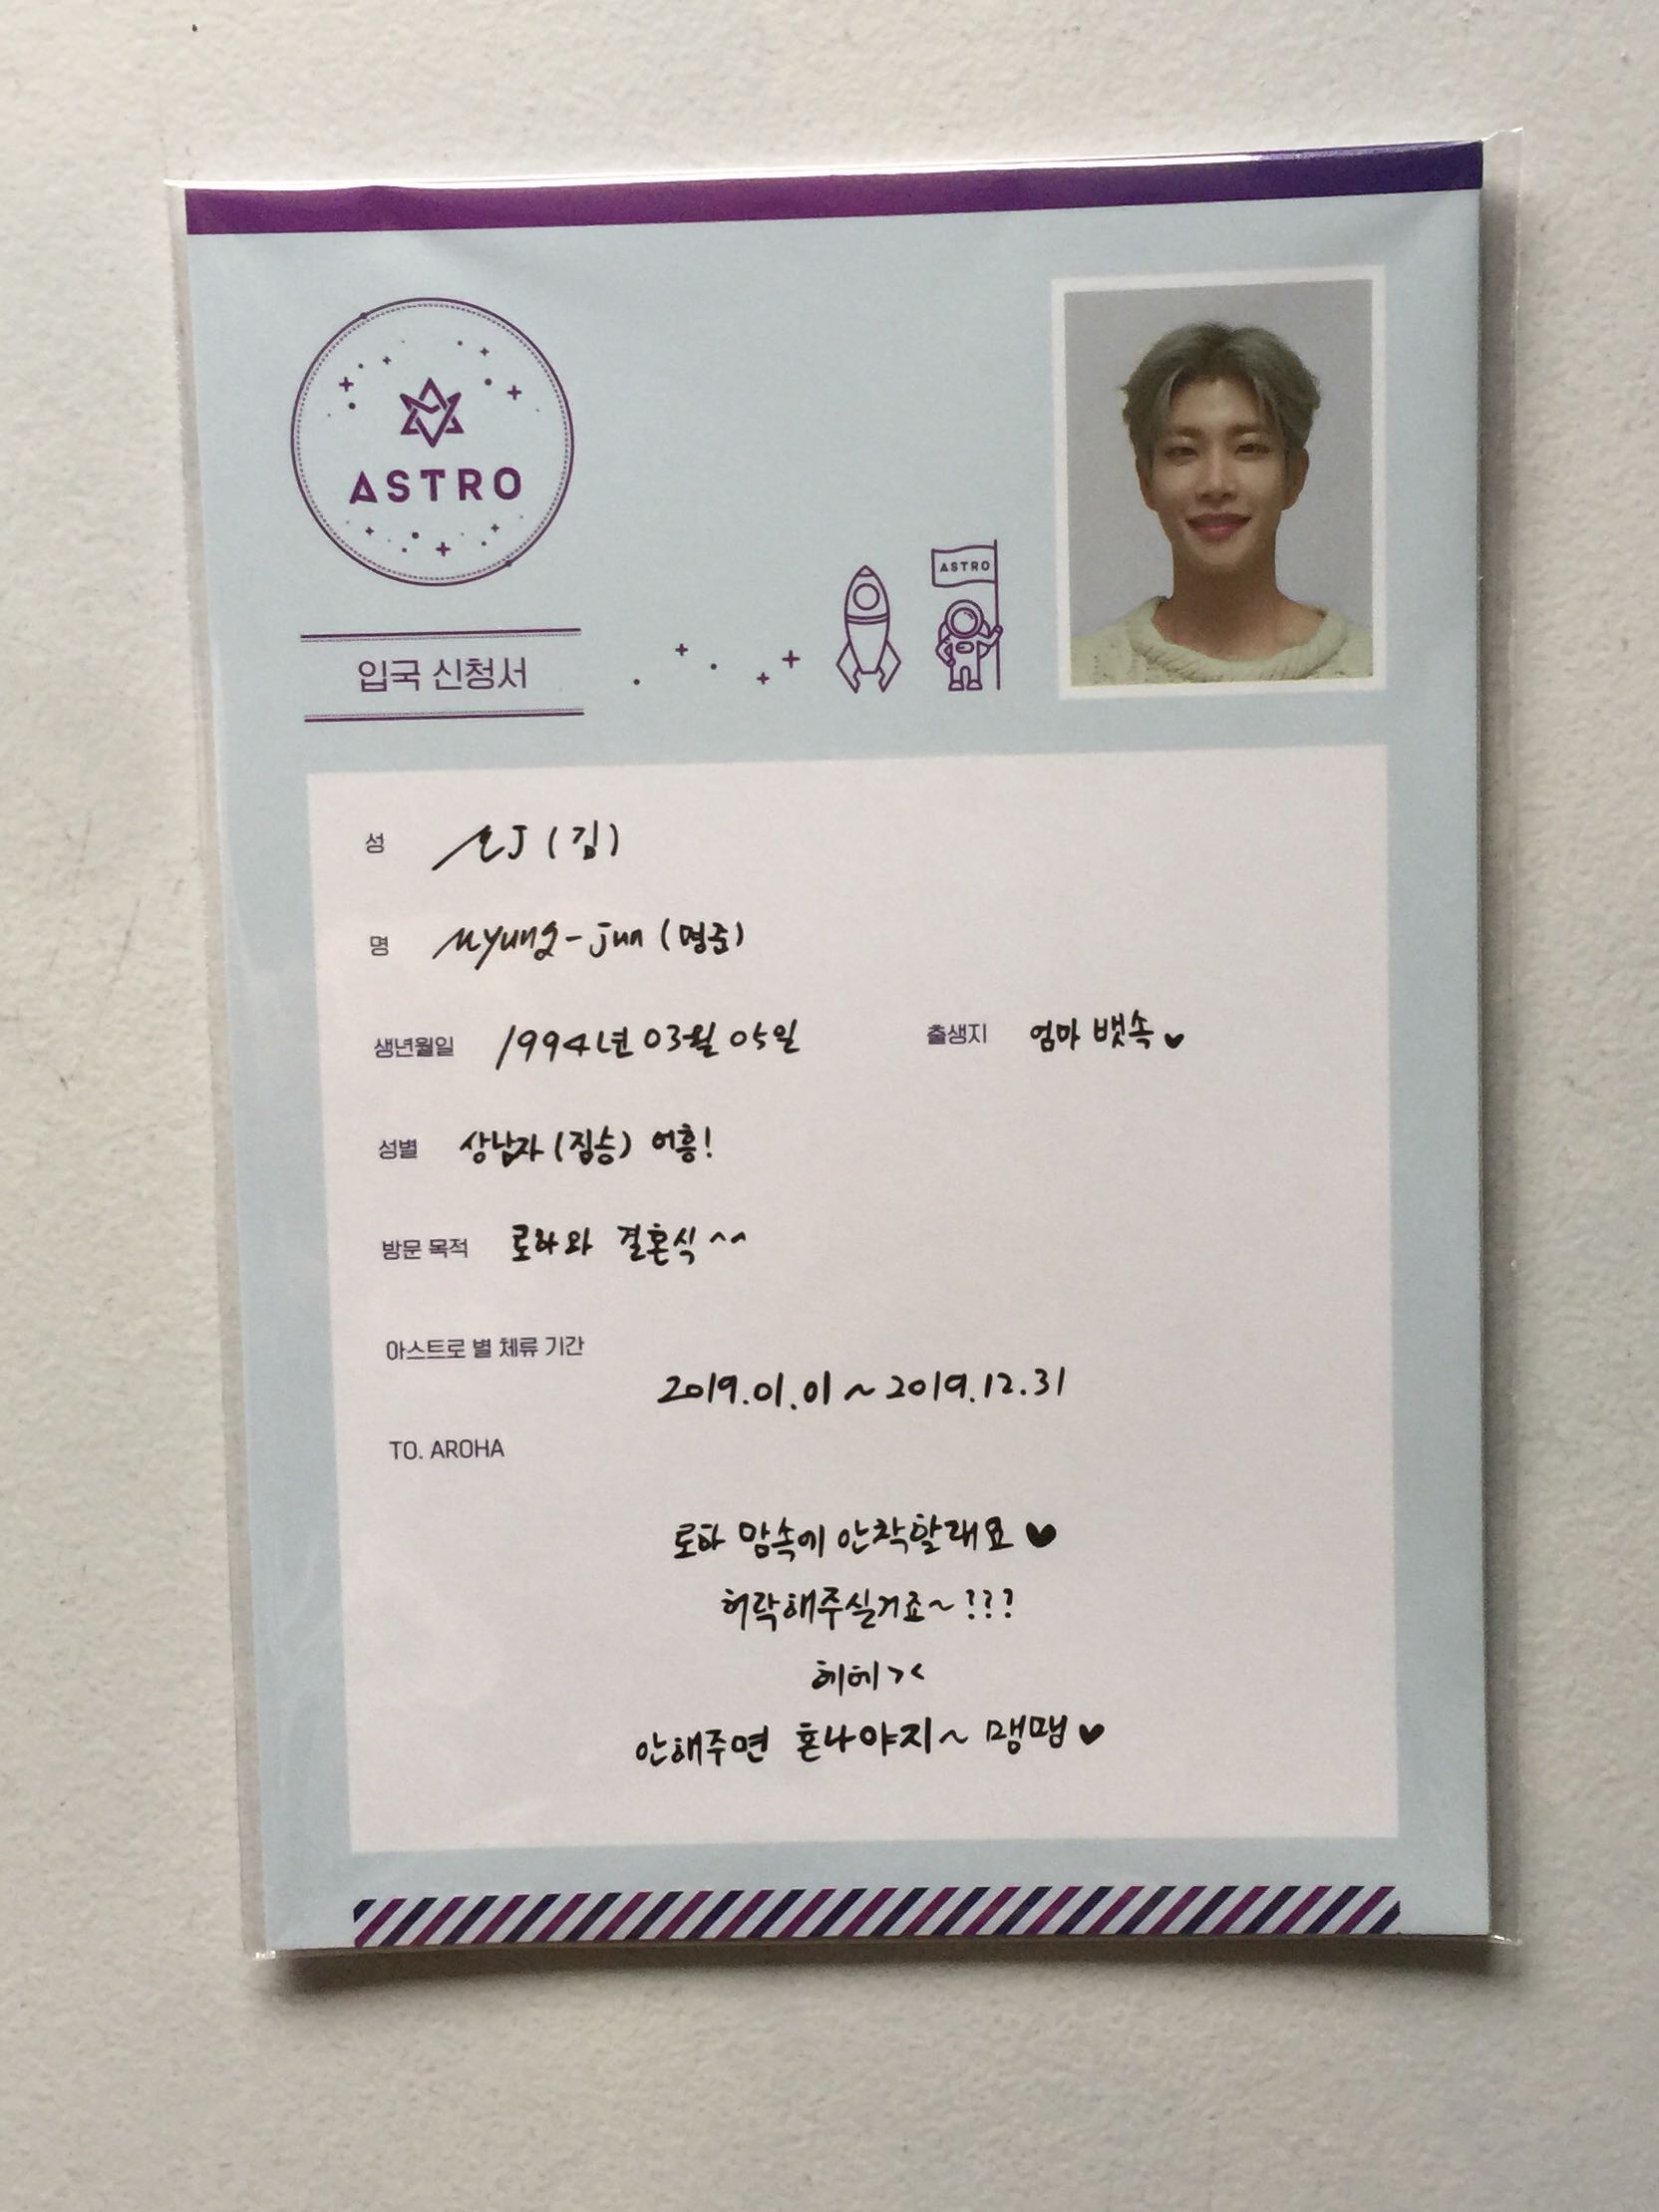 ASTRO
ASTRO
입국 신청서
성 MJ (김)
명 Myung-jun (명준)
생년월일 1994년 03월 05일 출생지 엄마 뱃속♥
성별 상남자 (짐승) 어흥!
방문 목적 로하와 결혼식^^
아스트로 별 체류 기간
2019.01.01 ~ 2019.12.31
TO. AROHA
로하 맘속에 안착할래요♥
허락해주실거죠~???
헤헤><
안해주면 혼나야지~ 맹맴♥